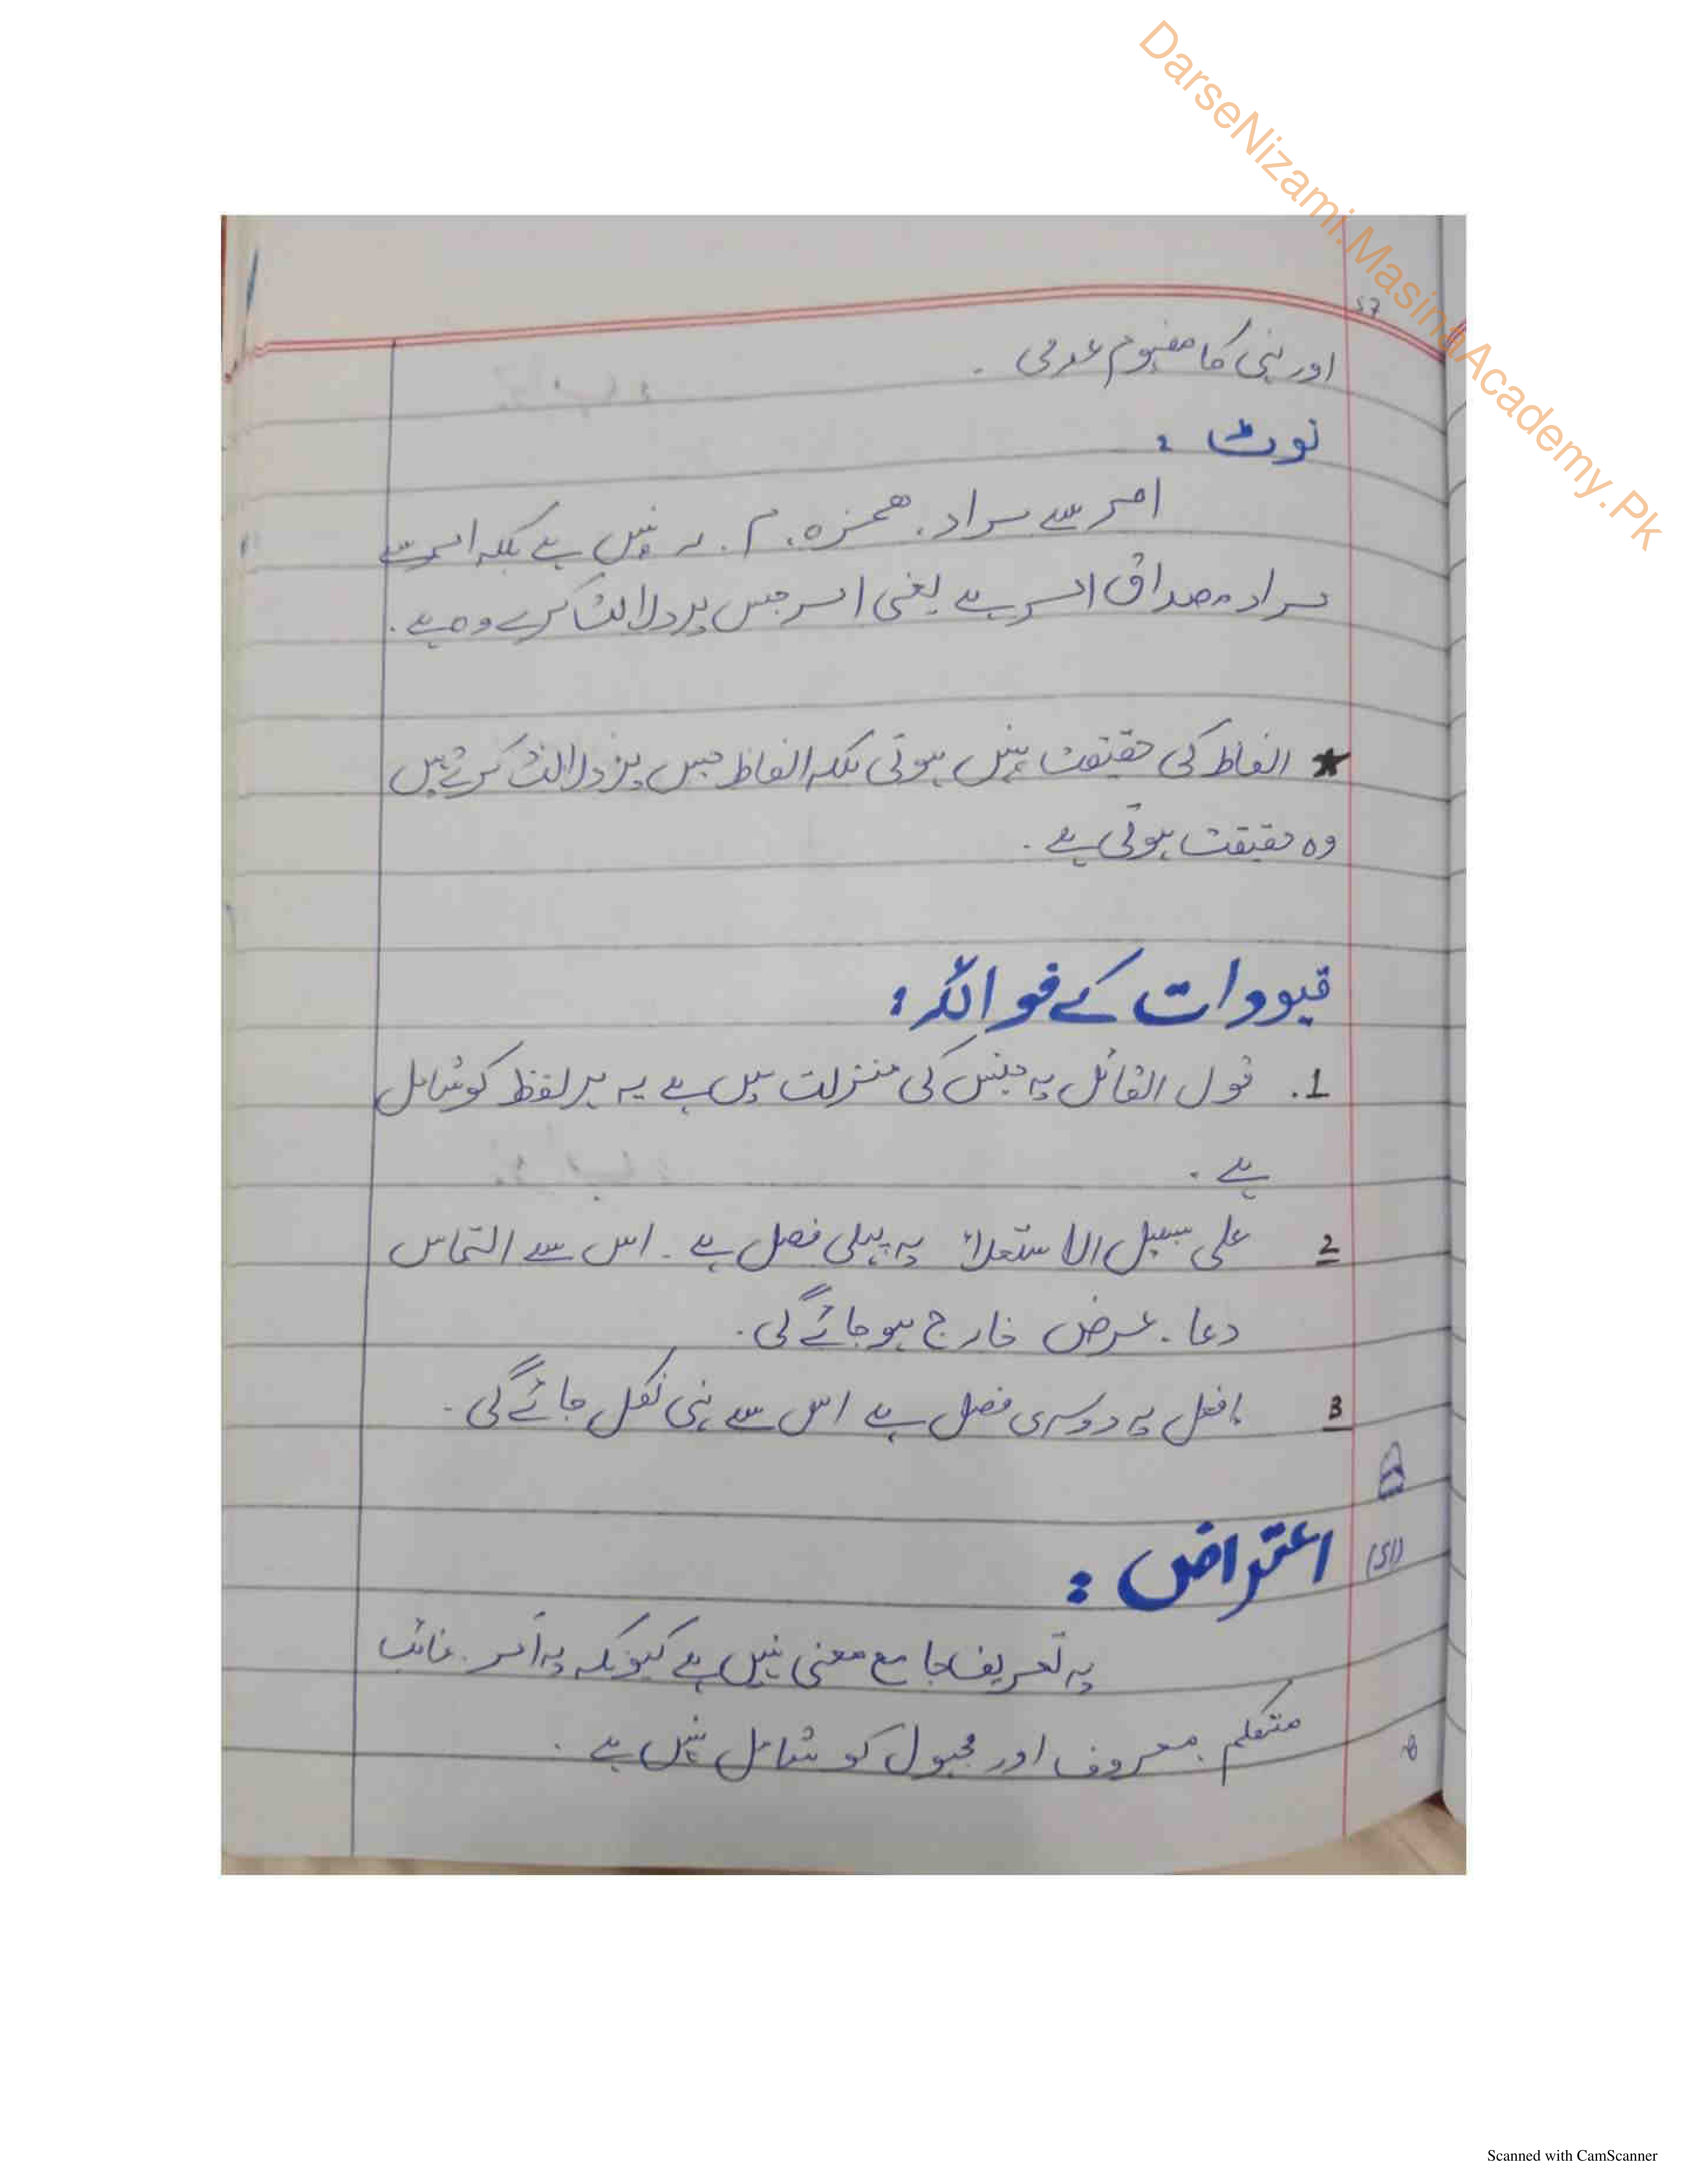 DarseNizami.MasingAcademy.Pk
57
اور نہی کا مفہوم عدمی ۔
نوٹ :
امر سے مراد ۔ ھمزہ ، م ، ر نہیں ہے بلکہ امر سے
مراد مصداق امر ہے یعنی امر جس پر دلالت کرے وہ ہے ۔
★ الفاظ کی حقیقت نہیں ہوتی بلکہ الفاظ جس پر دلالت کرتے ہیں
وہ حقیقت ہوتی ہے ۔
قیودات کے فوائد :
1. قول القائل یہ جنس کی منزلت میں ہے یہ ہر لفظ کو شامل
ہے ۔
2 علی سبیل الاستعلاء یہ پہلی فصل ہے ۔ اس سے التماس
دعا ۔ عرض خارج ہو جائے گی ۔
3 افعل یہ دوسری فصل ہے اس سے نہی نکل جائے گی ۔
(51)
اعتراض :
یہ تعریف جامع معنی نہیں ہے کیونکہ یہ امر ۔ غائب
متکلم ، معروف اور مجہول کو شامل نہیں ہے ۔
Scanned with CamScanner